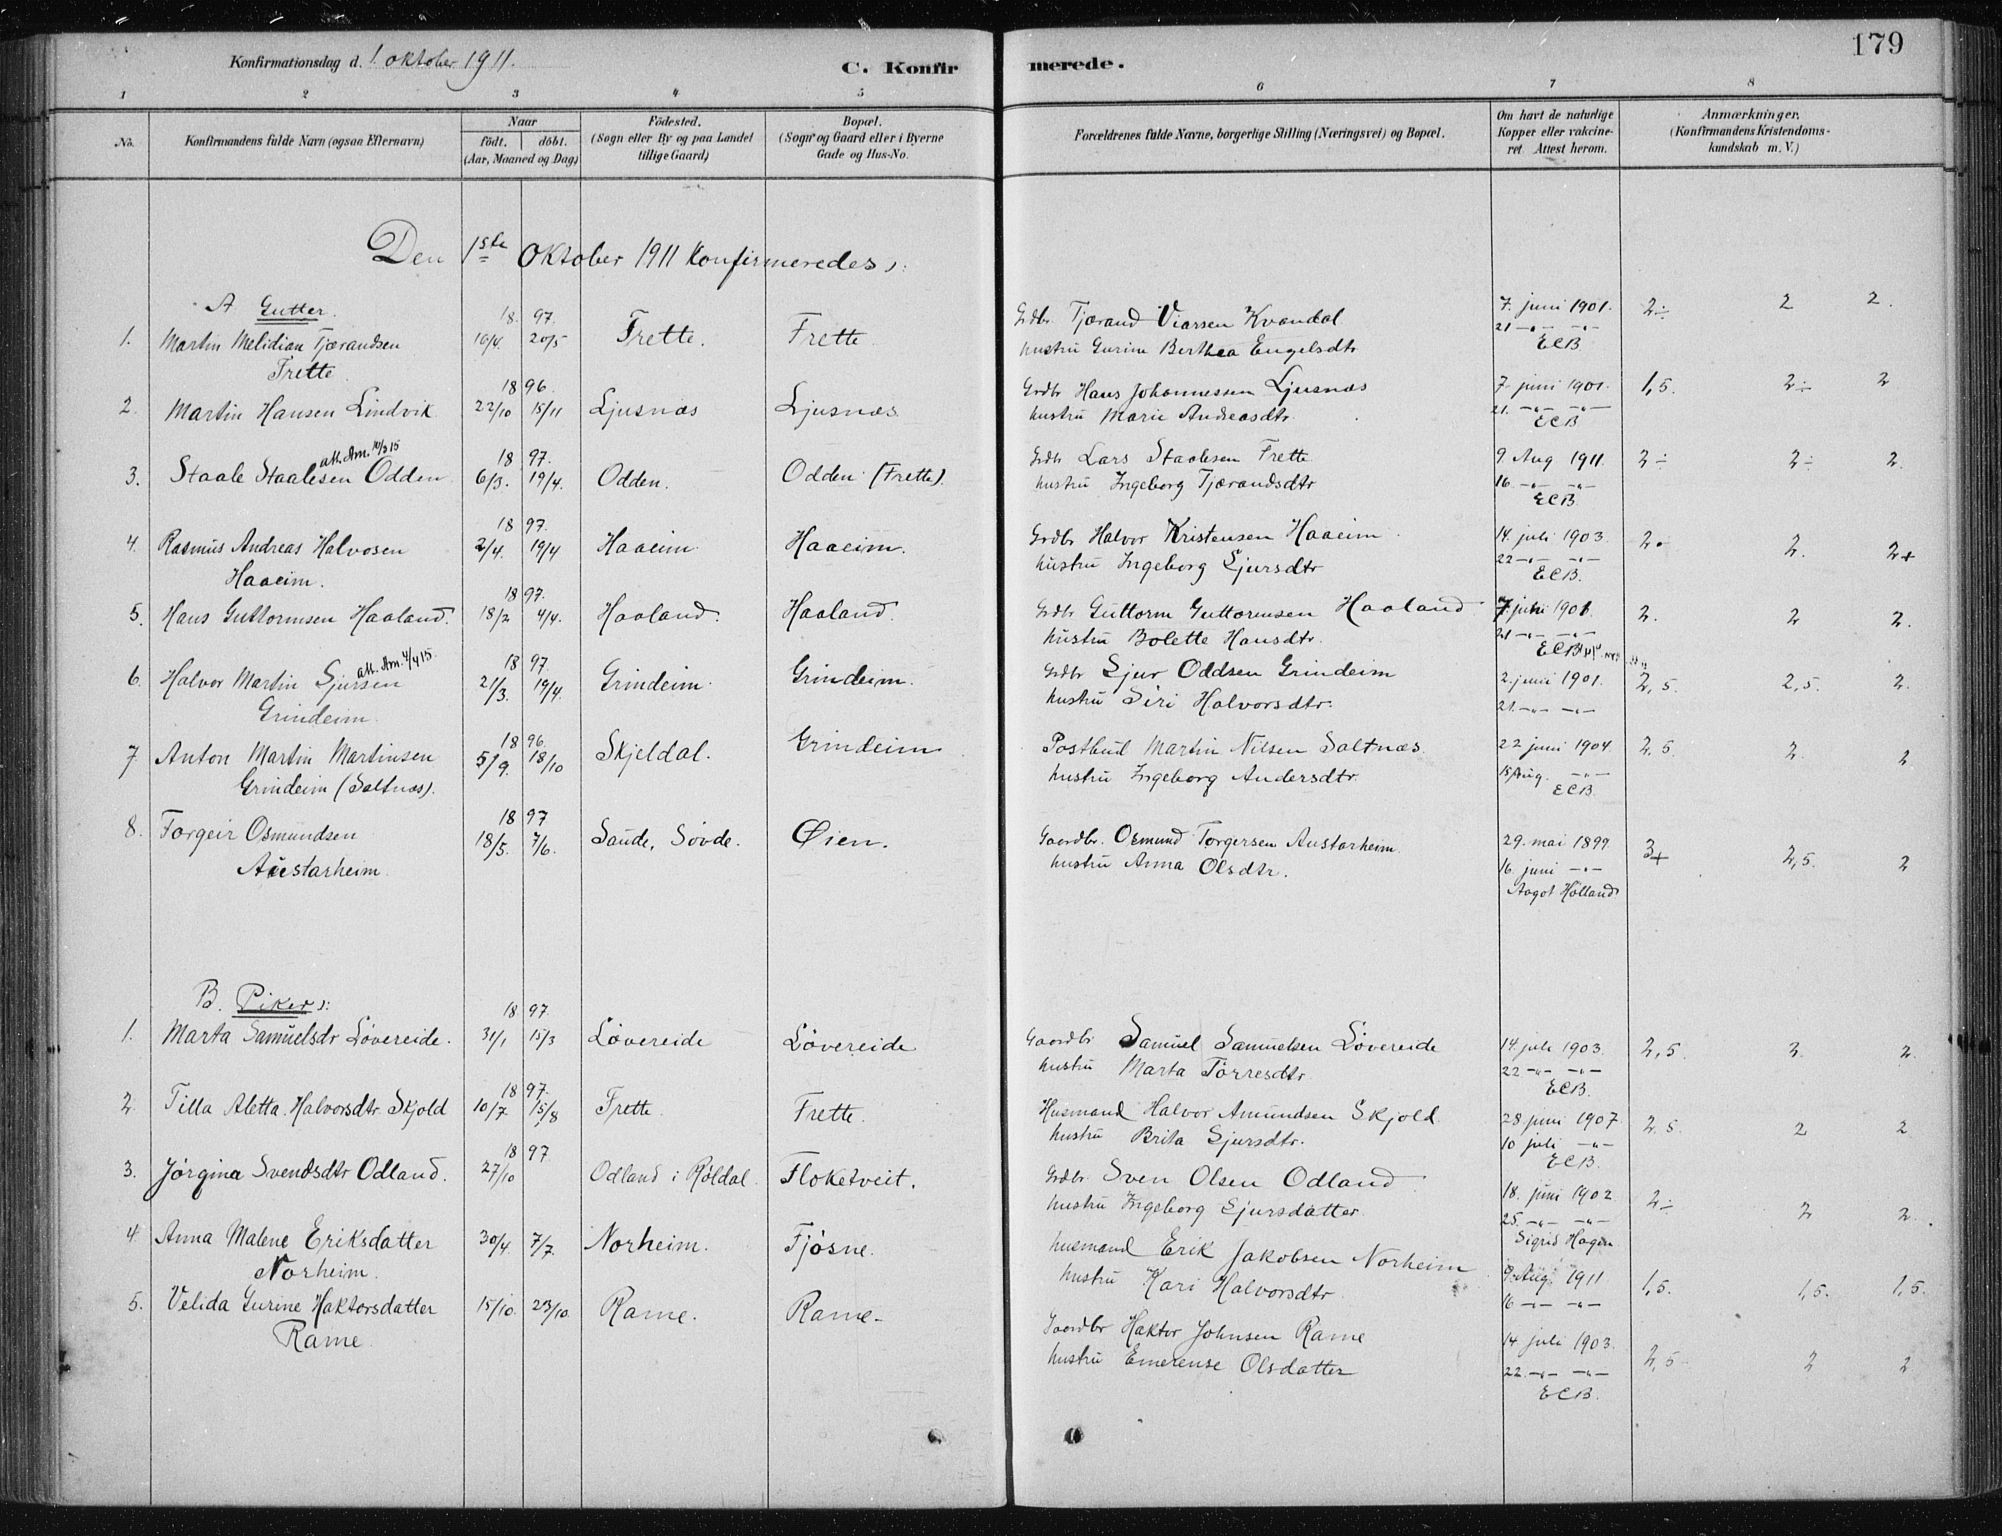 179
Konfirmationsdag d. 1. oktober 1911.
C. Konfirmerede.
1 2 3 4 5 6 7 8
No.
Konfirmandens fulde Navn (ogsaa Efternavn)
Naar
födt. döbt.
(Aar, Maaned og Dag)
Födested.
(Sogn eller By og paa Landet
tillige Gaard)
Bopæl.
(Sogn og Gaard eller i Byerne
Gade og Hus-No.
Forældrenes fulde Navne, borgerlige Stilling (Næringsvei) og Bopæl.
Om havt de naturlige
Kopper eller vakcine-
ret. Attest herom.
Anmærkninger.
(Konfirmandens Kristendoms-
kundskab m. V.)
Den 1ste oktober 1911 konfirmeredes):
A Gutter.
18 97.
1. Martin Melidian Tjærandsen 10/4. 20/5 Frette. Frette. Grdbr. Tjærand Viarsen Kvandal 7. juni 1901. 2÷ 2 2.
Frette hustru Gurine Berthea Engelsdtr 21 -"- -"-
ECB
18 96.
2. Martin Hansen Lindvik 22/10 15/11 Ljusnæs Ljusnæs Grdbr Hans Johannessen Ljusnæs 7. juni 1901. 1,5. 2÷ 2
hustru Marie Andreasdtr. 21. -"- -"-
ECB
att. Am. 10/3 15
18 97.
3. Staale Staalesen Odden 6/3. 19/4. Odden. Odden (Frette). Grdbr Lars Staalesen Frette 9 Aug 1911. 2÷ 2÷ 2.
hustru Ingeborg Tjærandsdtr 16. -"- -"-
ECB
18 97.
4. Rasmus Andreas Halvosen 2/4. 19/4 Haaeim Haaeim. Grdbr Halvor Kristensen Haaeim 14. juli 1903. 2. 2. 2+
Haaeim. hustru Ingeborg Sjursdtr 22 -"- -"-
ECB.
18 97.
5. Hans Guttormsen Haaland. 18/2 4/4. Haaland. Haaland. Grdbr Guttorm Guttormsen Haaland 7. juni 1901. 2. 2 2.
hustru Bolette Hansdtr. 21 -"- -"-
ECB
att. Am. 4/4 15.
18 97.
6. Halvor Martin Sjursen 21/3. 19/4. Grindeim. Grindeim. Grdbr Sjur Oddsen Grindeim 2. juni 1901. 2,5. 2,5. 2.
Grindeim. hustru Siri Halvorsdtr. 21. -"- -"-
18 96.
7 Anton Martin Martinsen 5/9. 18/10 Skjeldal. Grindeim Postbud Martin Nilsen Saltnæs. 22 juni 1904. 2,5. 2. 2
Grindeim (Saltnæs). hustru Ingeborg Andersdtr. 15 Aug. -"-
ECB.
18 97
8. Torgeir Osmundsen 18/5. 7/6. Saude, Søvde. Øien. Gaardbr. Osmund Torgersen Austarheim 29. mai 1899. 3+ 2,5. 2
Austarheim. hustru Anna Olsdtr. 16. juni -"-
Aagot Hølland
B. Piker):
18 97.
1. Marta Samuelsdr Løvereide. 31/1 15/3 Løvereide Løvereide Gaardbr Samuel Samuelsen Løvereide 14. juli 1903. 2,5. 2. 2.
hustru Marta Torresdtr. 22 -"- -"-
ECB.
18 97.
2. Tilla Aletta. Halvorsdtr. Skjold 10/7. 15/8 Frette. Frette. Husmand Halvor Amundsen Skjold. 28 juni 1907. 2.5. 2 2
hustru Brita Sjursdtr. 10 juli -"-
ECB.
18 97
3. Jørgina Svendsdtr Odland. 27/10 Odland i Røldal. Floketveit. Grdbr Sven Olsen Odland 18. juni 1902 2÷ 2 2.
hustru Ingeborg Sjursdatter 25. -"- -"-
Sigrid Hagen
4. Anna Malene Eriksdatter 30/4. 7/7. Norheim. Fjøsne. husmand Erik Jakobsen Norheim 9. Aug. 1911 1,5. 1,5. 1,5.
Norheim. hustru Kari Halvorsdtr 16 -"- -"-
5. Velida Gurine Haktorsdatter 15/10. 23/10. Rame. Rame. Gaardbr Haktor Johnsen Rame 14 juli 1903. 2,5 2 2
Rame hustru Emerense Olsdatter 22. -"- -"-
ECB.